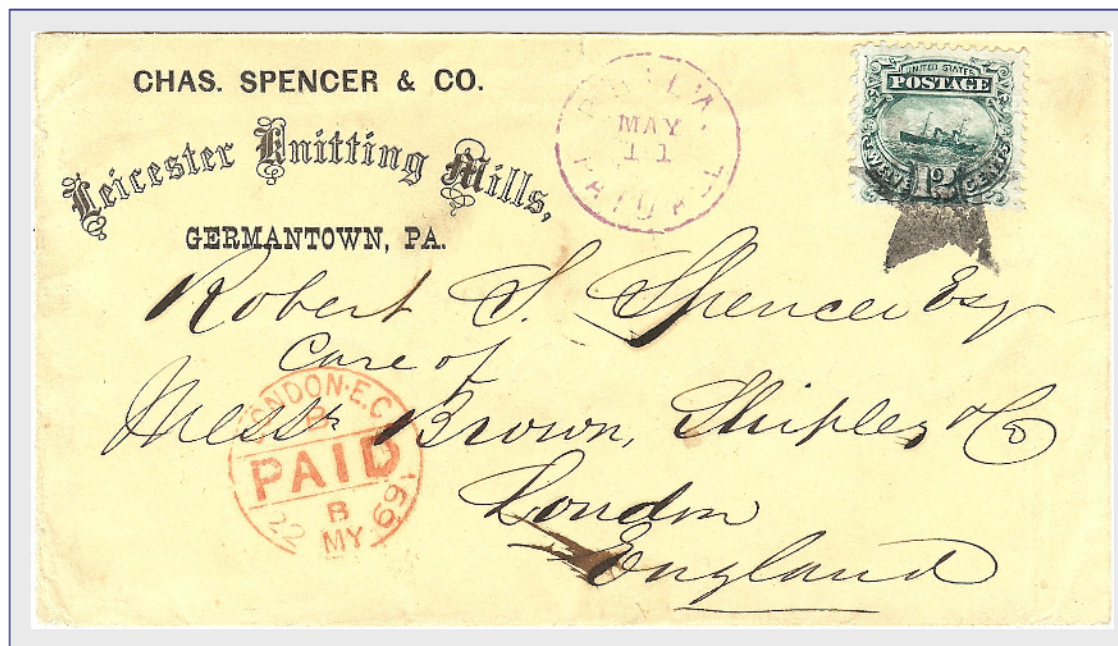 CHAS. SPENCER & CO.
Leicester Knitting Mills,
GERMANTOWN, PA.
MAY
11
UNITED STATES
POSTAGE
TWELVE 12 CENTS
Robert S. Spencer Esq
Care of
Messrs Brown, Shipley & Co
London
England
LONDON·E.C
B
PAID
B
22 MY 69